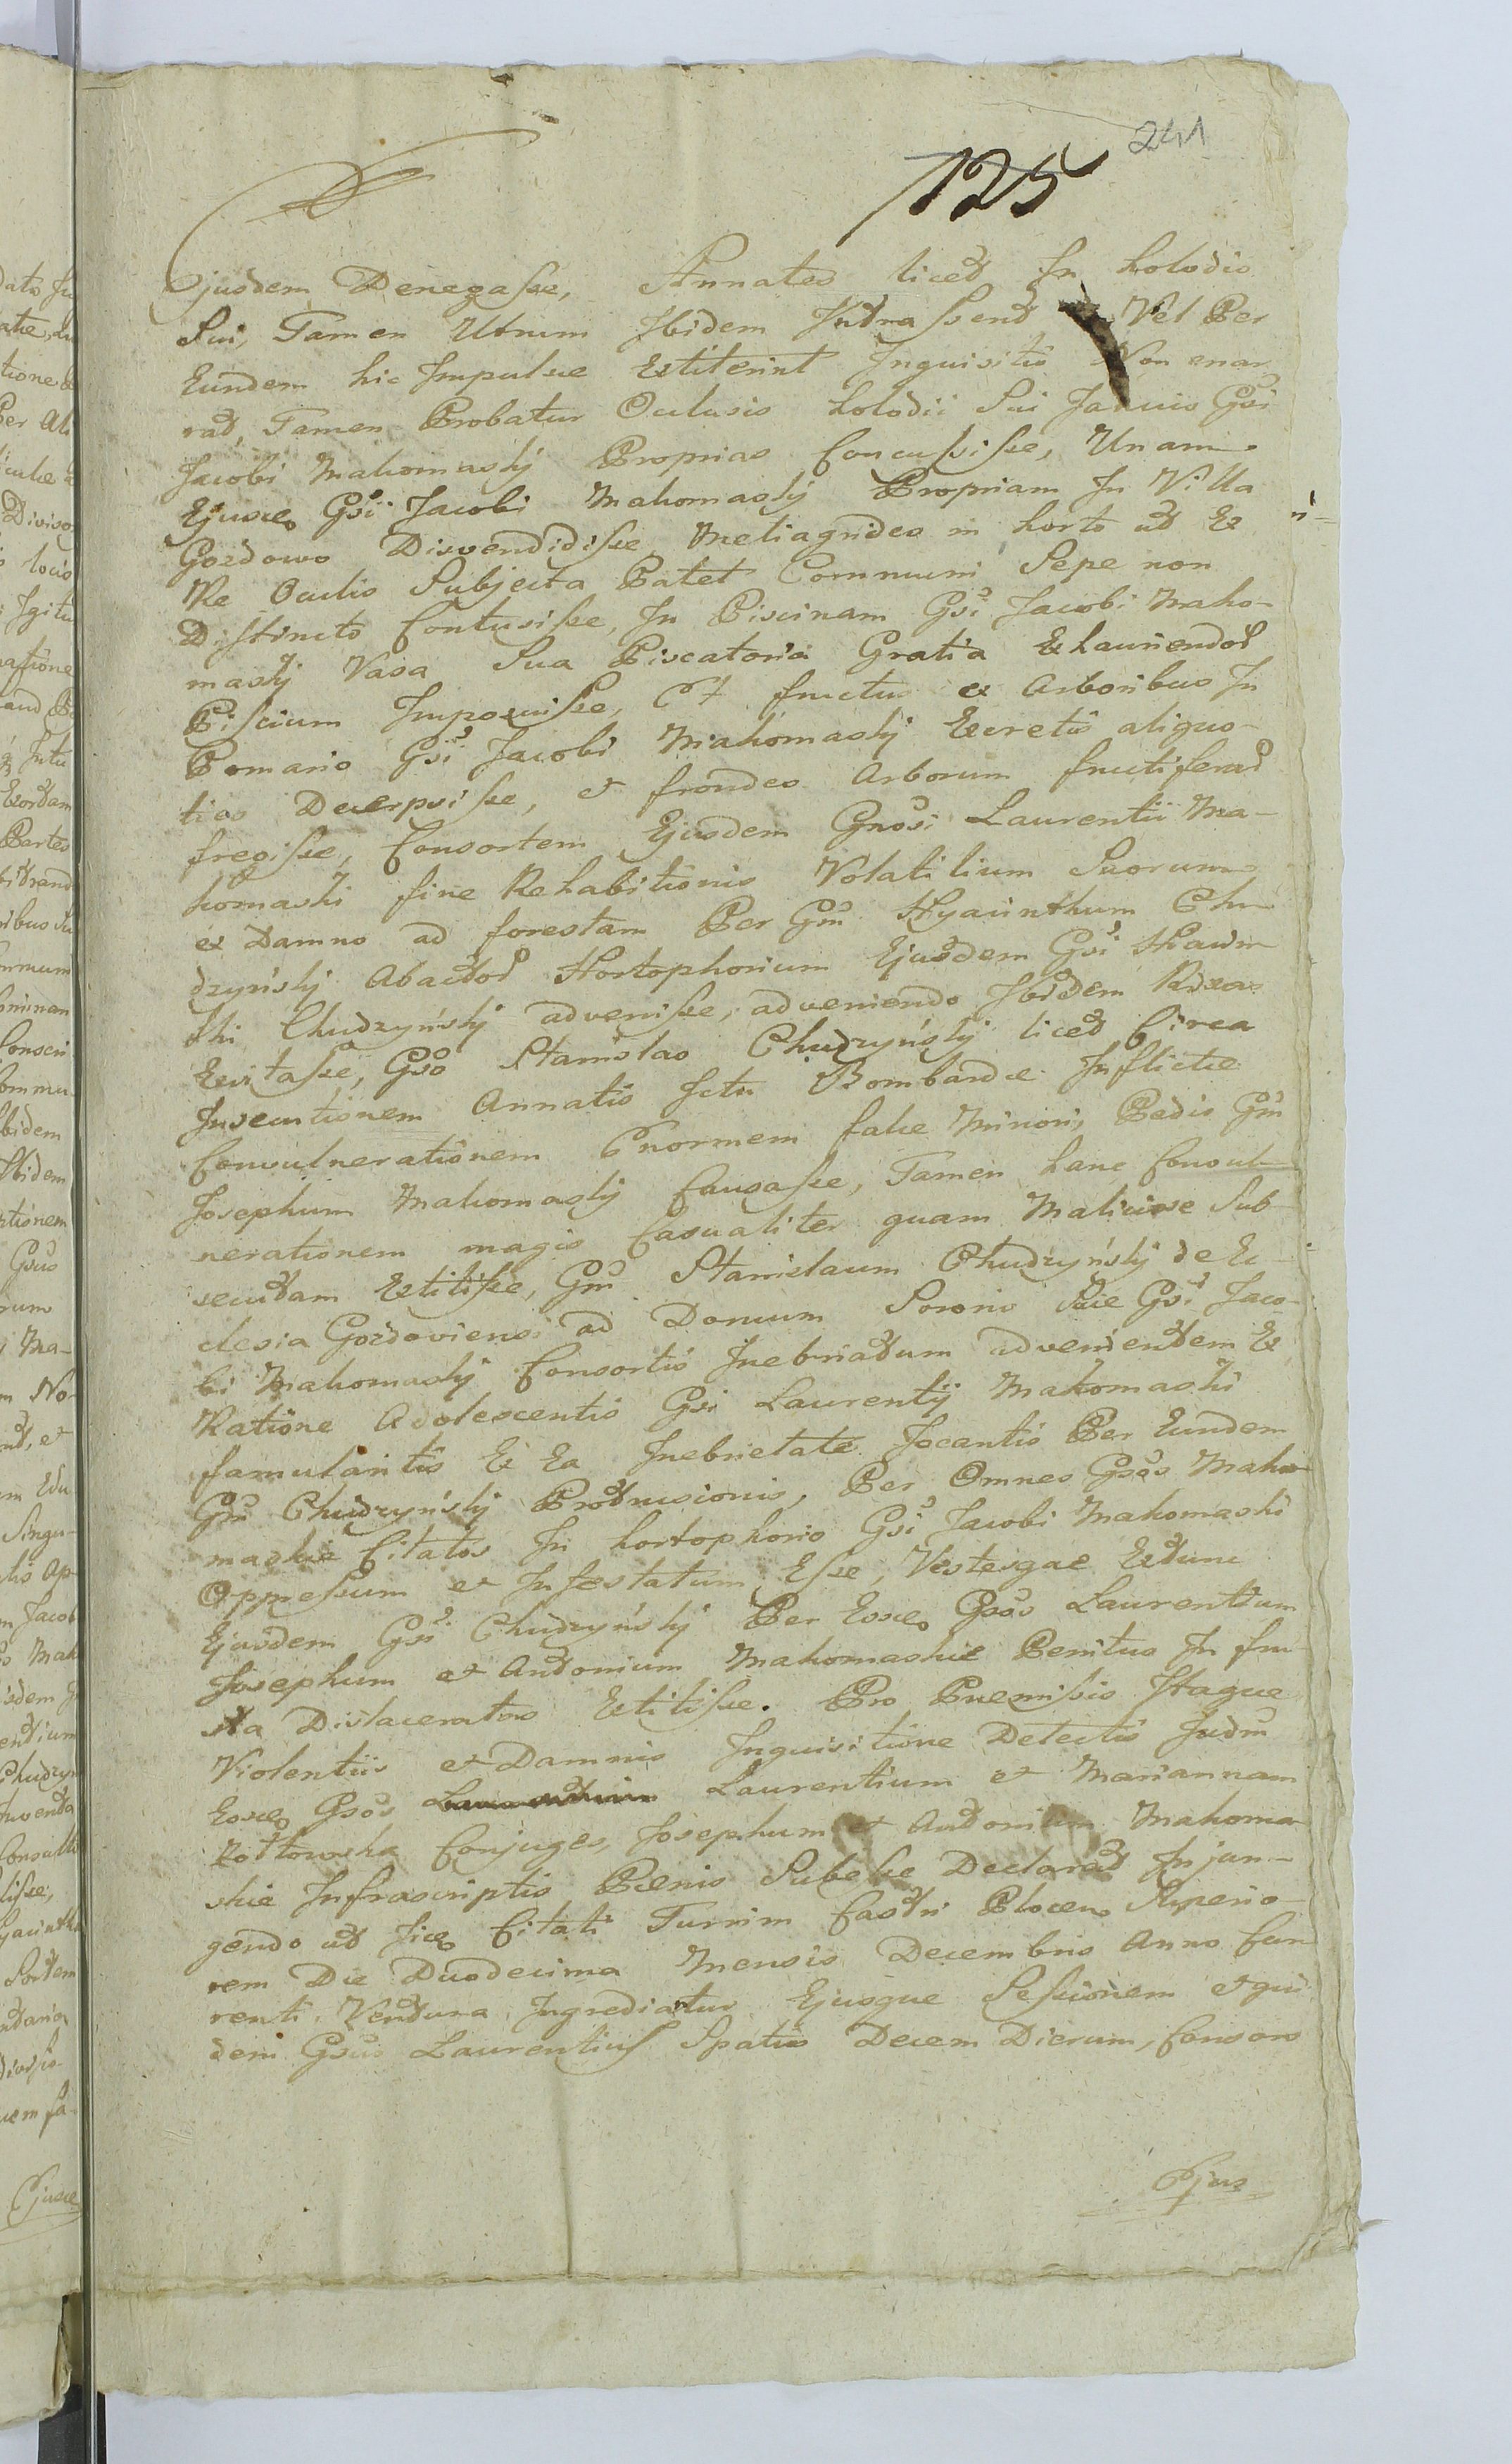 241
125
Ejusdem Denegasse, Annates licet In holodio
Sui, Tamen Utrum Ibidem Intrassent Vel Per
Eundem hic Impulsæ Extiterint Inquisitio Non enar
rat, Tamen Probatur Oclusis holodii Sui Januis Gsi
Jacobi Makomaskÿ Proprias Concussisse, Unam
Ejusce Gsi Jacobi Makomaskÿ Propriam In Villa
Gozdowo Disvendidisse, Meliagrides in horto ut Ex
Re Oculis Subjecta Patet Communi Sepe non
Distincto Contusisse, In Piscinam Gsi Jacobi Mako-
maskÿ Vasa Sua Piscatoria Gratia Exhauriendor
Piscium Imposuisse, Et fructus ex Arboribus In
Pomario Gsi Jacobi Makomaskÿ Excretis aliquo-
ties Decerpsisse, et frondes Arborum fructiferar
fregisse, Consortem Ejusdem Gnosi Laurentii Ma-
komaski fine Rehabitionis Volatilium Suorum
ex Damno ad forestam Per Gm Hyacinthum Chu
dzyńskÿ Abactor Hortophorium Ejusdem Gsi
ski Chudzyńskÿ advenisse, adveniendo Ibidem Rixas
Excitasse, Gso Stanislao Chudzyńskÿ licet Circa
Insecutionem Annatis Ictu Bombardæ Inflictæ
Convulnerationem Enormem
Josephum Makomaskÿ Causasse, Tamen hanc Convul-
nerationem magis Casualiter quam Maliciose Sub-
secutam Extitisse, Gm Stanislaum Chudzyńskÿ de Ec-
clesia Gozdoviensi ad Domum Sororis Suæ Gsi Jaco-
bi Makomaskÿ Consortis Inebriatum advenientem Ex
Ratione Adolescentis Gsi Laurentÿ Makomaski
famulantis Ex Ea Inebrietate Jocantis Per Eundem
Gm Chudzyńskÿ Protrusionis, Per Omnes Gsos Mako
maskie Citatos In hortophorio Gsi Jacobi Makomaski
Oppressum et Infestatum Esse, Vestesque Extunc
Ejusdem Gsi Chudzyńskÿ Per Eosce Gsos Laurentium
Josephum et Antonium Makomaskie Penitus In fru
sta Dislaceratas Extitisse. Pro Præmissis Itaque
Violentiis et Damnis Inquisitione Detectis Judm
Eosce Gsos Laurentium et Mariannam
Kotłowska Conjuges, Josephum et Antonium Makoma
skie Infrascriptis Pænis Subesse Declarat Injun-
gendo ut Iice Citati Turrim Castri Plocen Superio-
rem Die Duodecima Mensis Decembris Anno Cur
renti, Ventura Ingrediantur Ejusque Sessionem et qui
dem Gsus Laurentius Spatio Decem Dierum, Consors
Ejus